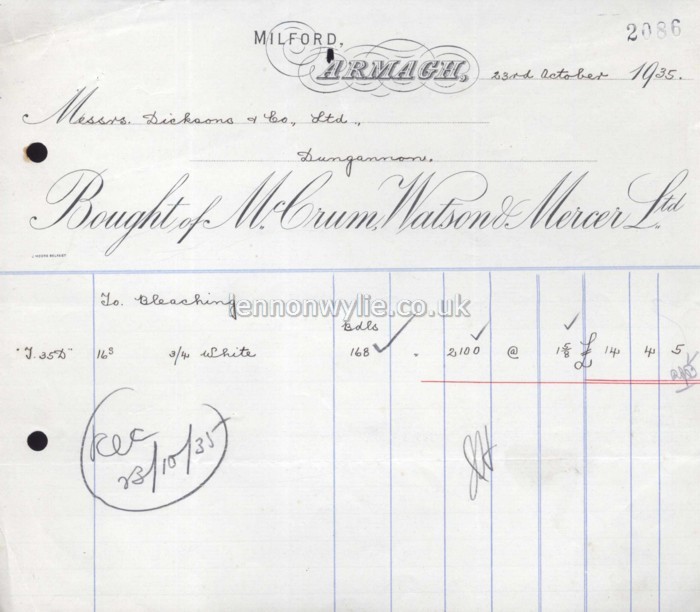 2086
MILFORD,
ARMAGH, 23rd October 1935.
Messrs. Dicksons & Co., Ltd.,
Dungannon.
Bought of McCrum, Watson & Mercer Ltd
To Bleaching
ennonwylie.co.uk
Bdls
"J. 35D" 16s 3/4 White 168 . 2100 @ 1 5/8 £ 14 4 5
23/10/35